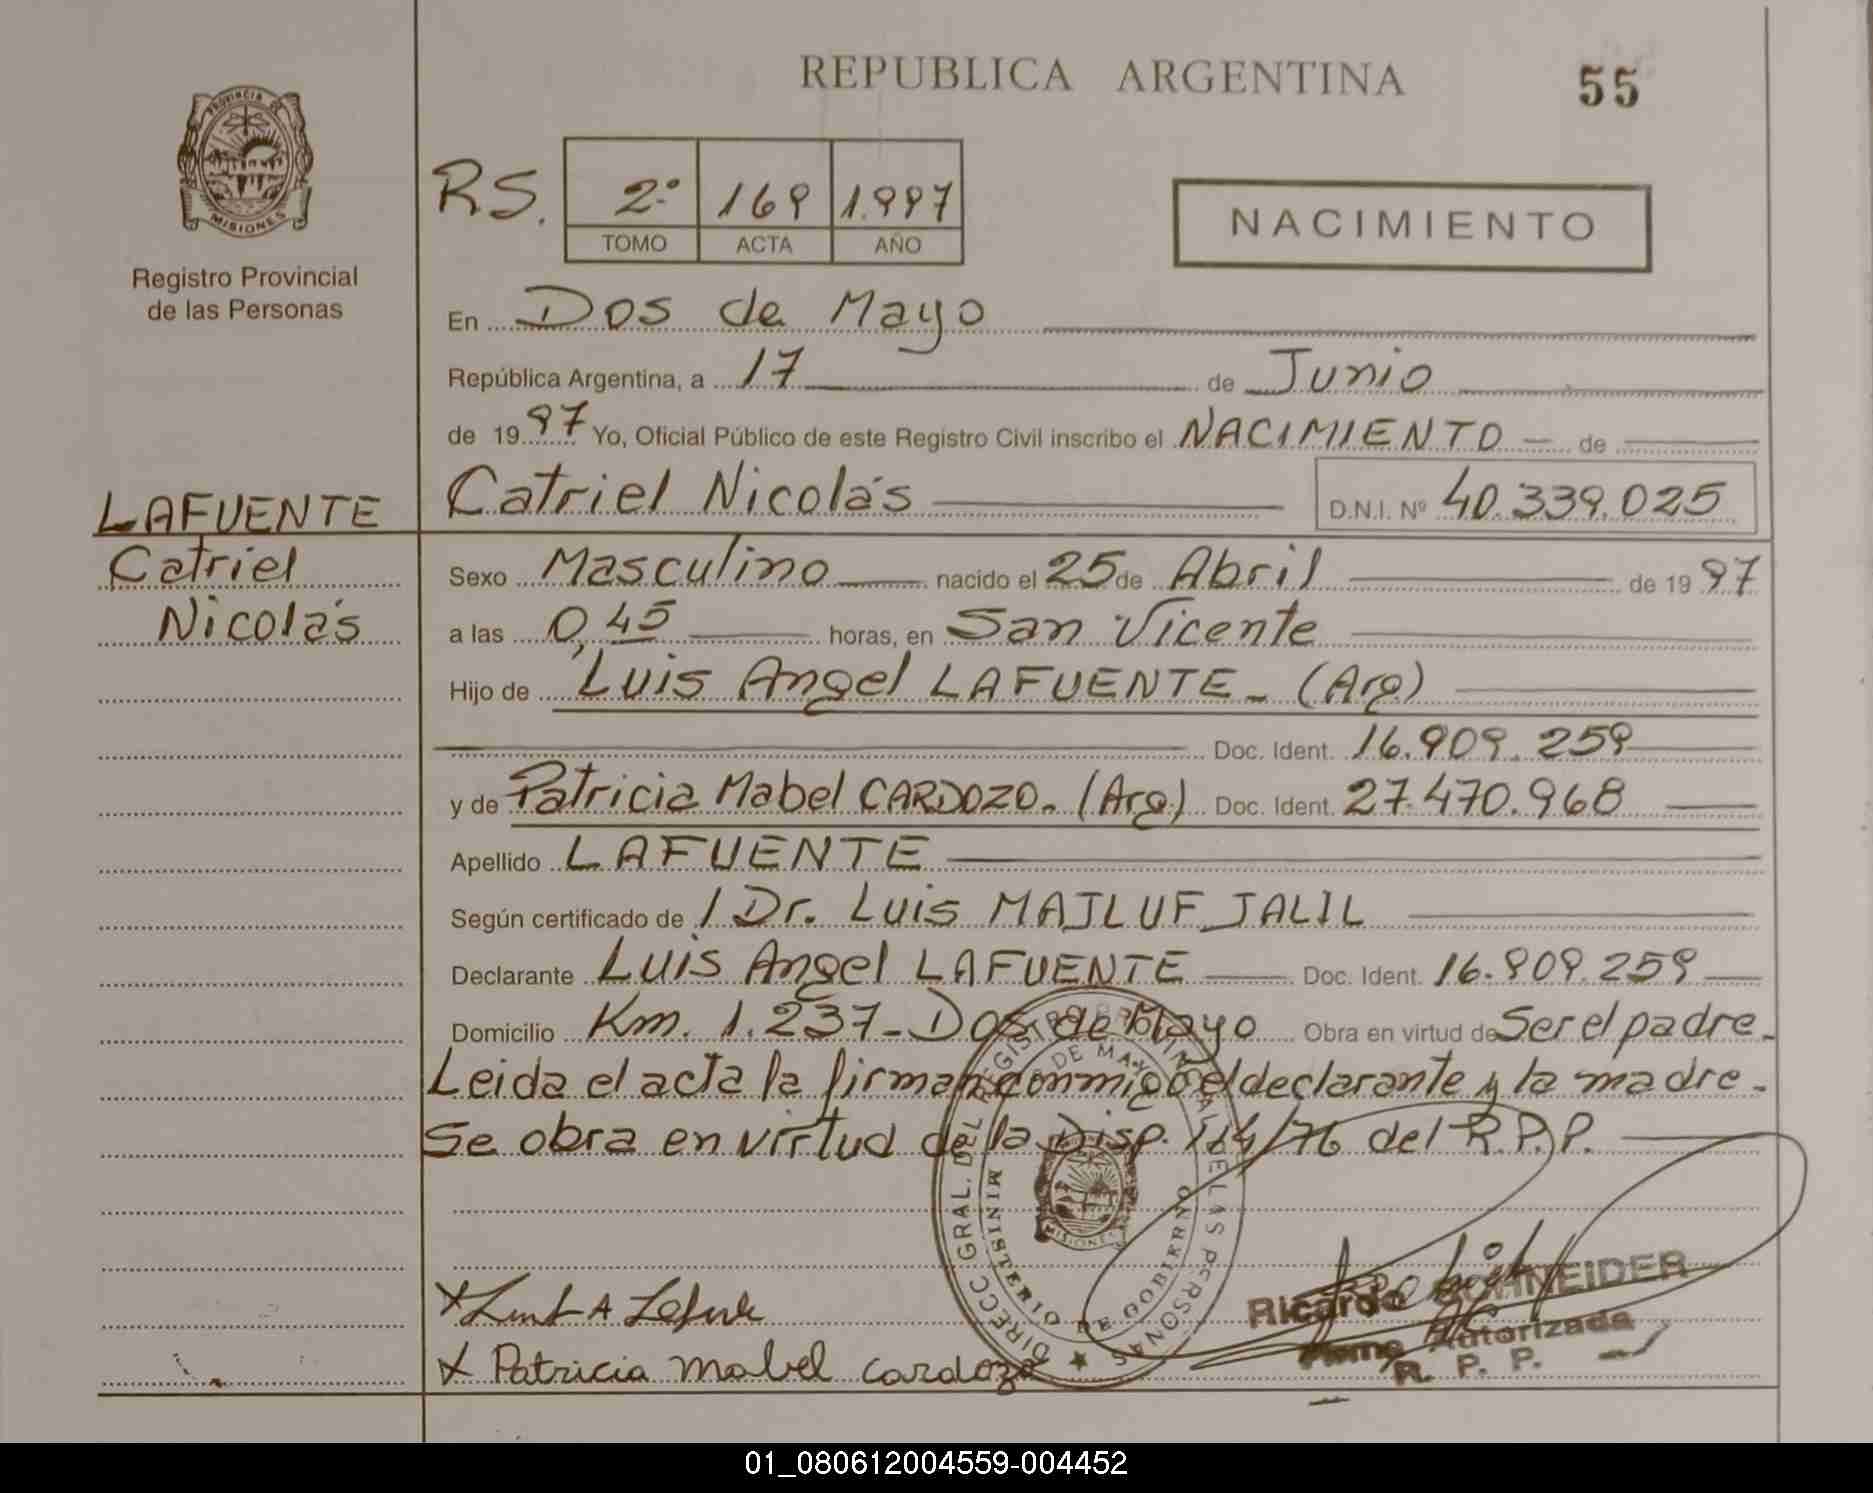 REPUBLICA ARGENTINA
55
PROVINCIA DE MISIONES
Registro Provincial
de las Personas
RS.
2º 169 1.997
TOMO ACTA AÑO
NACIMIENTO
En Dos de Mayo
República Argentina, a 17 de Junio
de 1997 Yo, Oficial Público de este Registro Civil inscribo el NACIMIENTO de
Catriel Nicolás D.N.I. Nº 40.339.025
LAFUENTE
Catriel
Nicolás
Sexo Masculino nacido el 25 de Abril de 1997
a las 0,45 horas, en San Vicente
Hijo de Luis Angel LAFUENTE - (Arg)
Doc. Ident. 16.909.259
y de Patricia Mabel CARDOZO. (Arg) Doc. Ident. 27.470.968
Apellido LAFUENTE
Según certificado de / Dr. Luis MAJLUF JALIL
Declarante Luis Angel LAFUENTE Doc. Ident. 16.909.259
Domicilio Km. 1.237 - Dos de Mayo Obra en virtud de Ser el padre.
Leida el acta la firman conmigo el declarante y la madre.
Se obra en virtud de la Disp. 114/76 del R.P.P.
DIRECC GRAL. DEL REGISTRO PROVINCIAL DE LAS PERSONAS
MINISTERIO DE GOBIERNO
MISIONES
Ricardo SCHNEIDER
Firma Autorizada
R. P. P.
x Patricia Mabel Cardozo
01_080612004559-004452